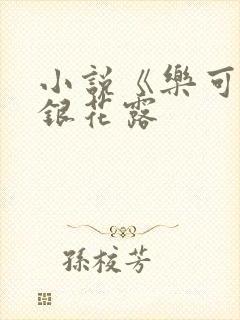 小說《樂可
銀花露
孫校芳